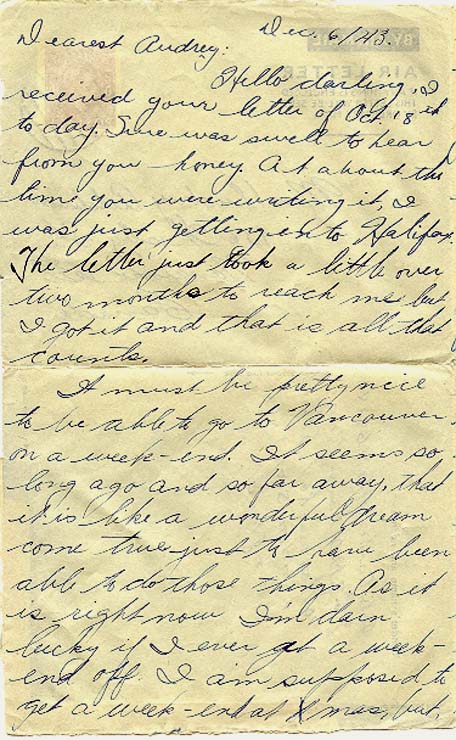 Dec. 6/43.
Dearest Audrey:
Hello darling, I
received your letter of Oct 18th
to day. Sure was swell to hear
from you honey. At about the
time you were writing it, I
was just getting in to Halifax.
The letter just took a little over
two months to reach me but
I got it and that is all that
counts.
It must be pretty nice
to be able to go to Vancouver
on a week-end. It seems so
long ago and so far away, that
it is like a wonderful dream
come true just to have been
able to do those things. As it
is right now I'm darn
lucky if I ever get a week-
end off. I am supposed to
get a week-end at Xmas, but,